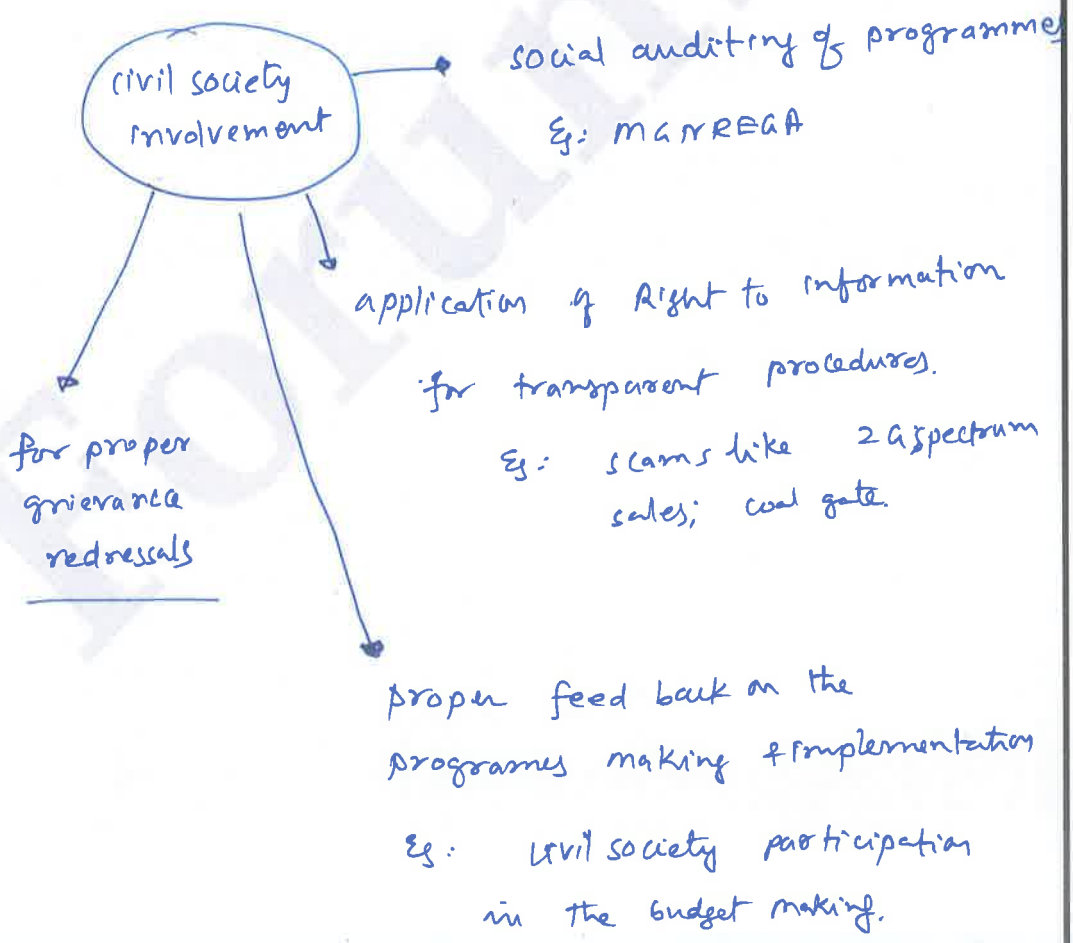 civil society
involvement
social auditing of programmes
Eg: MGNREGA
application of Right to information
for transparent procedures.
Eg: scams like 2G spectrum
sales; coal gate.
for proper
grievance
redressals
proper feed back on the
programes making & implementation
Eg: civil society participation
in the budget making.
Forum